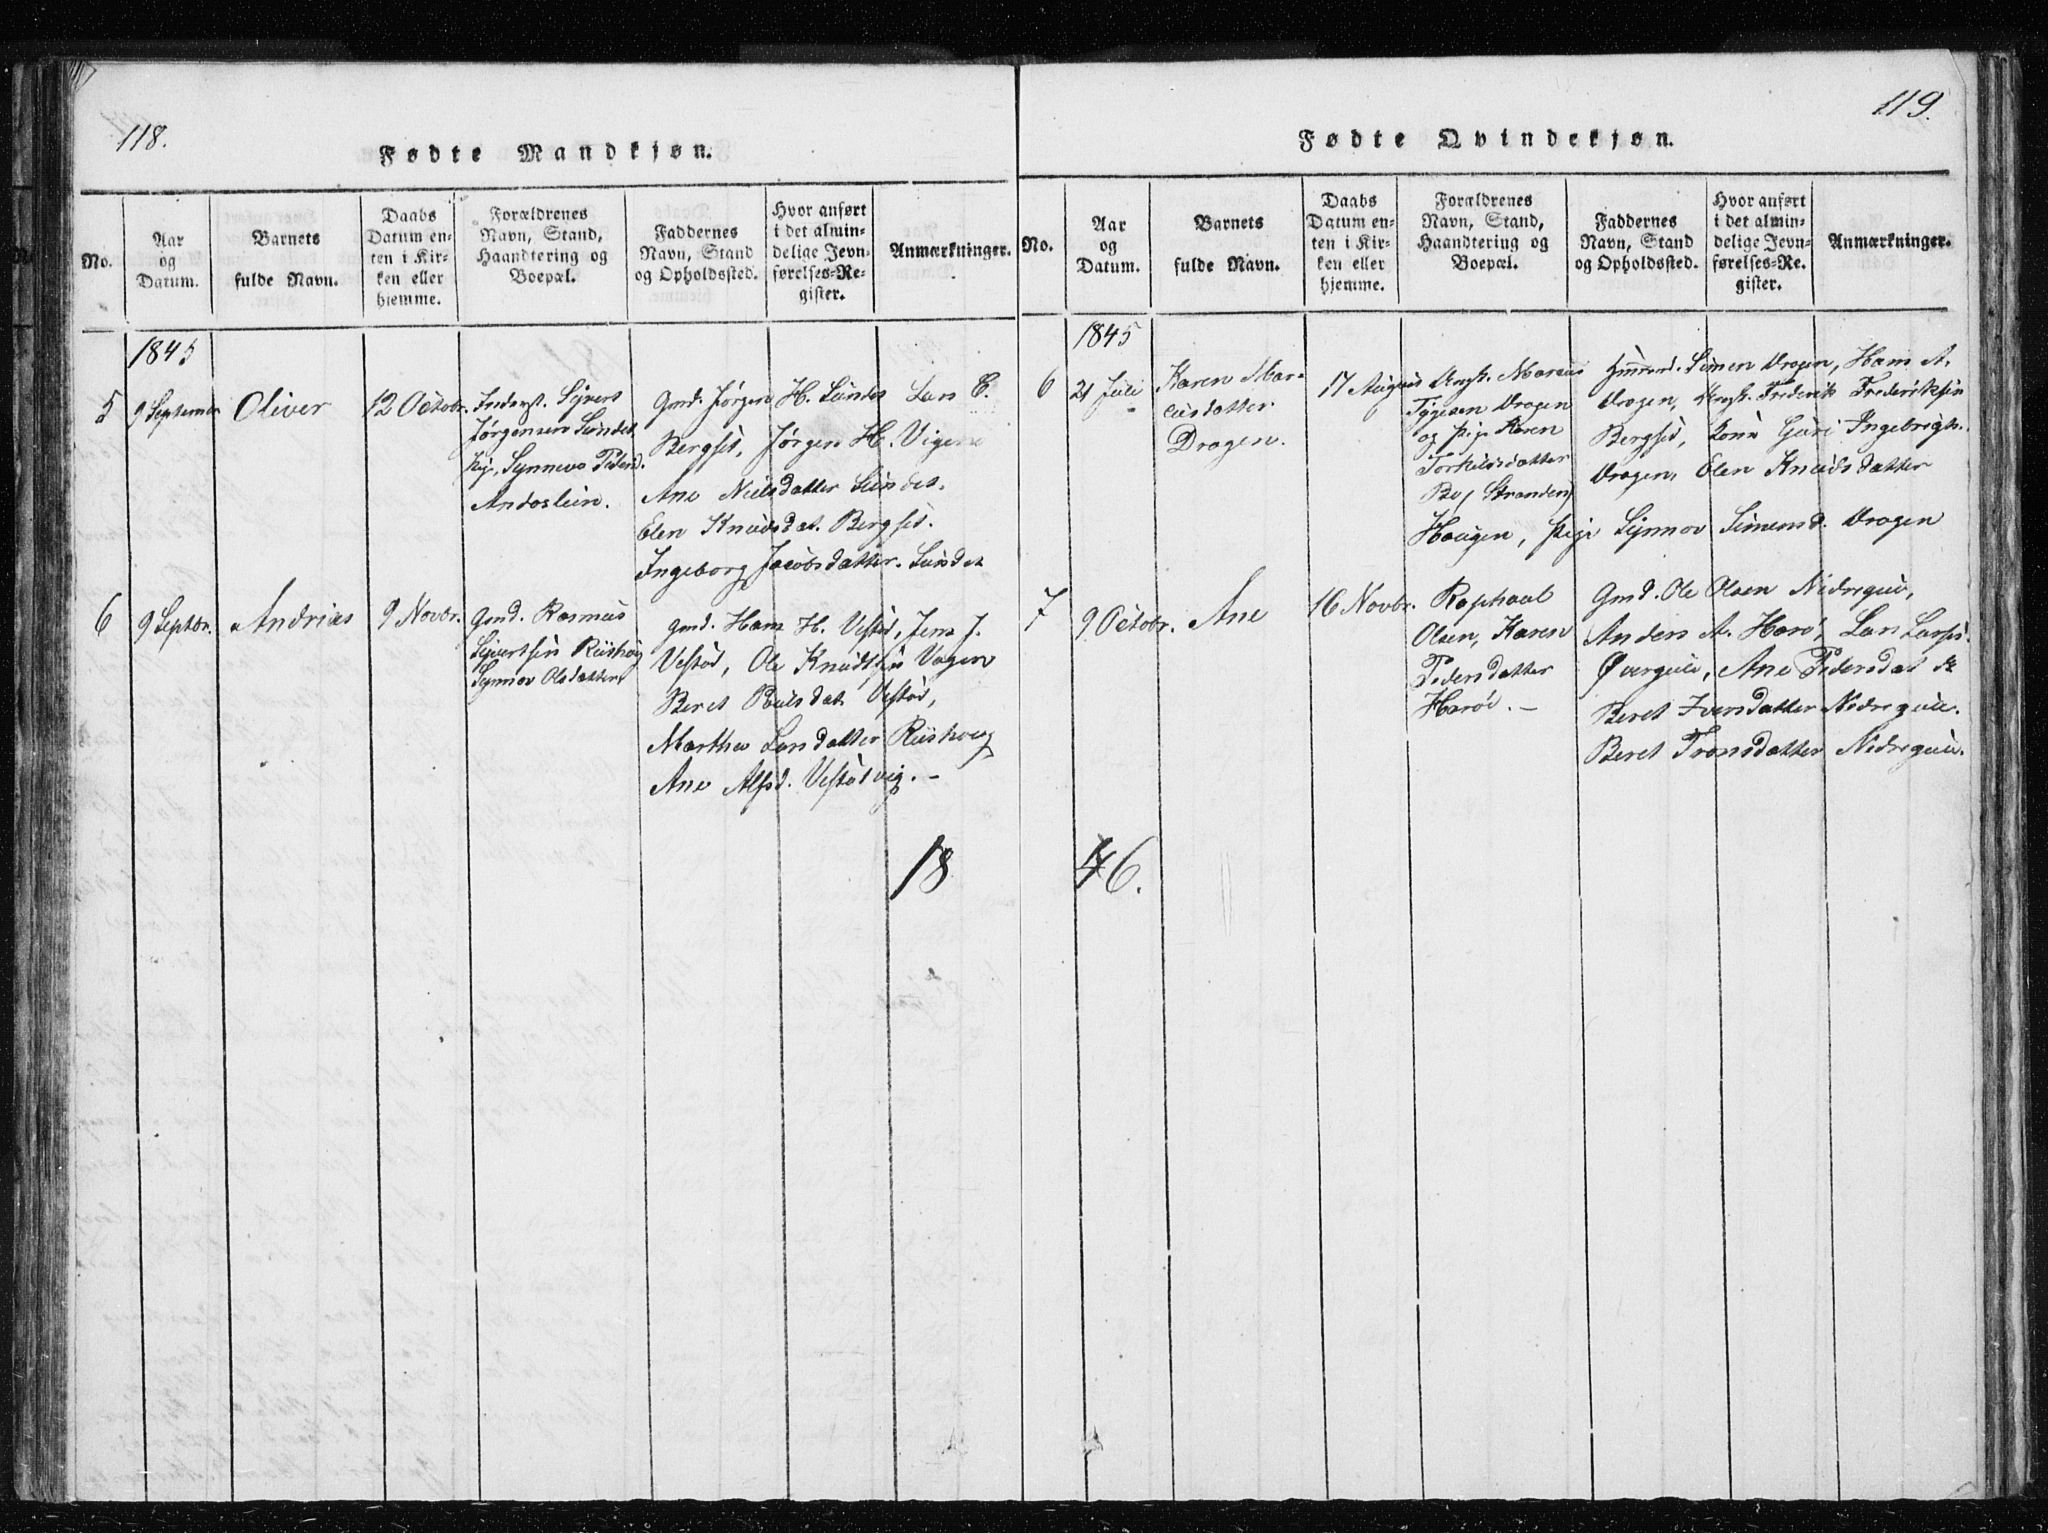 118.
Fødte Mandkjøn.
No.
Aar
og
Datum.
Barnets
fulde Navn.
Daabs
Datum en-
ten i Kir-
ken eller
hjemme.
Forældrenes
Navn, Stand,
Haandtering og
Boepæl.
Faddernes
Navn, Stand
og Opholdssted.
Hvor anført
i det almin-
delige Jevn-
førelses-Re-
gister.
Anmærkninger.
1845
5
9 September
Oliver
12 Octobr.
Sivert
Jørgensen Sundet
Pig. Synneva Peders.
Gmd. Jørgen H. Sundet Lars C.
Bergset, Jørgen H. Vigen
Ane Nielsdatter Sundet.
Elen Knudsdat. Bergset.
Ingeborg Jacobsdatter. Sundet
6
9 Septbr.
Andrias
9 Novbr.
Gmd. Rasmus
Sivertsen Riishoug
Synnov Olsdatter
Gmd. Hans H. Vestad, Jens J.
Vestad, Ole Knudsen Vagen
Beret Poulsdat. Vestad,
Marthe Larsdatter Riishoug
Ane Alfsd. Vestadvig. -
18
119.
Fødte Qvindekjøn.
No.
Aar
og
Datum.
Barnets
fulde Navn.
Daabs
Datum en-
ten i Kir-
ken eller
hjemme.
Forældrenes
Navn, Stand,
Haandtering og
Boepæl.
Faddernes
Navn, Stand
og Opholdssted.
Hvor anført
i det almin-
delige Jevn-
førelses-Re-
gister.
Anmærkninger.
1845
6
21 Juli
Karen Mar-
cusdatter
Dragen.
17 August
Ungk. Marcus
Dragen
og Pige Karen
Torkelsdatter
Bo/Stranden
Simen Dragen, Hans A.
Dragen, Ungk. Frederik Frederiksen
Bergset, Kone Guri Ingebrigts.
Dragen, Elen Knudsdatter
Haugen, Pige Synnov Simensd. Dragen
7
9 Octobr.
Ane
16 Novbr.
Raphael
Olsen, Karen
Pedersdatter
Harø. -
Gmd. Ole Olsen Nedregul,
Anders A. Harø, Lars Larss.
Øvergule, Ane Pedersdat
Beret Iversdatter Nedregule.
Beret Tronsdatter Nedregule.
46.